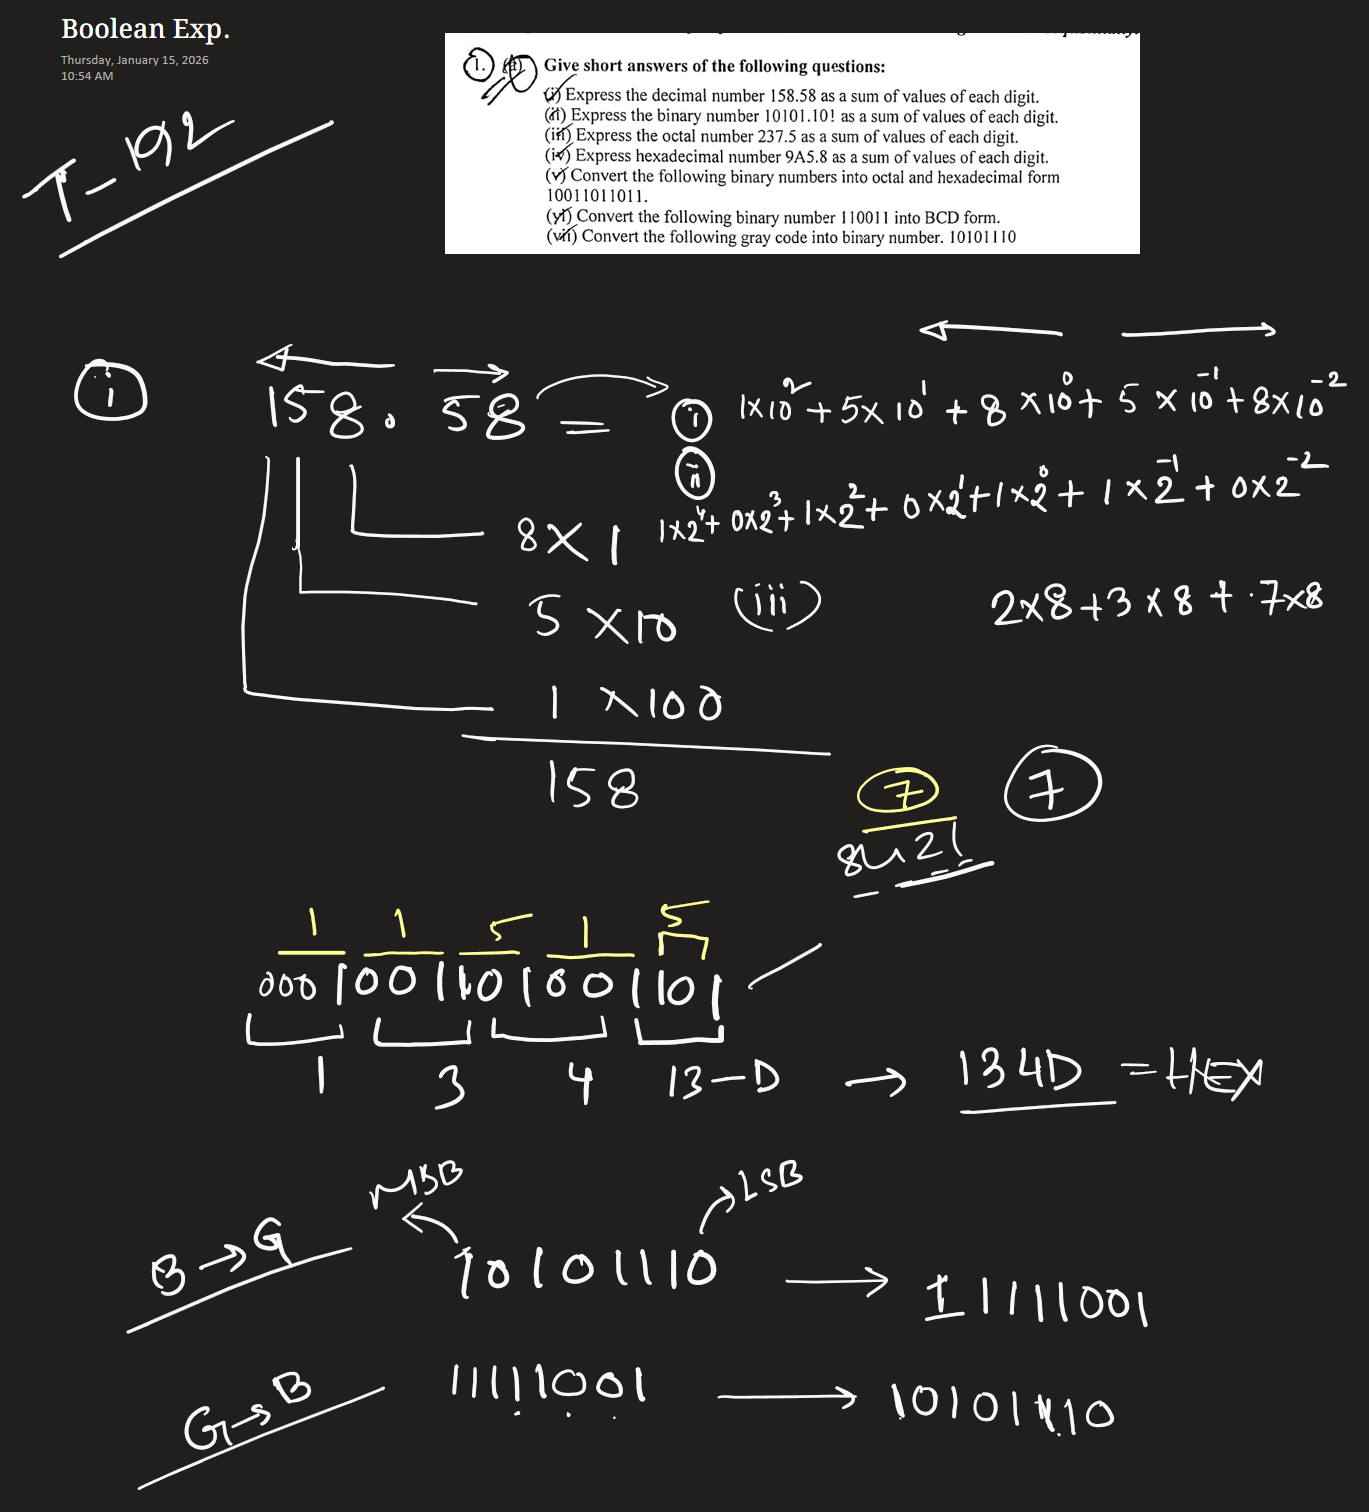 Boolean Exp.
Thursday, January 15, 2026
10:54 AM
T-192
1. (a) Give short answers of the following questions:
(i) Express the decimal number 158.58 as a sum of values of each digit.
(ii) Express the binary number 10101.10! as a sum of values of each digit.
(iii) Express the octal number 237.5 as a sum of values of each digit.
(iv) Express hexadecimal number 9A5.8 as a sum of values of each digit.
(v) Convert the following binary numbers into octal and hexadecimal form
10011011011.
(vi) Convert the following binary number 110011 into BCD form.
(vii) Convert the following gray code into binary number. 10101110
i 158.58 = i 1×10² + 5×10¹ + 8×10⁰ + 5×10⁻¹ + 8×10⁻²
ii 1×2⁴ + 0×2³ + 1×2² + 0×2¹ + 1×2⁰ + 1×2⁻¹ + 0×2⁻²
8×1
5×10 (iii) 2×8+3×8+.7×8
1×100
158
7 7
8421
1 1 5 1 5
0001001101001101
1 3 4 13-D → 134D = HEX
MSB LSB
B→G 10101110 → 11111001
G→B 11111001 → 10101110